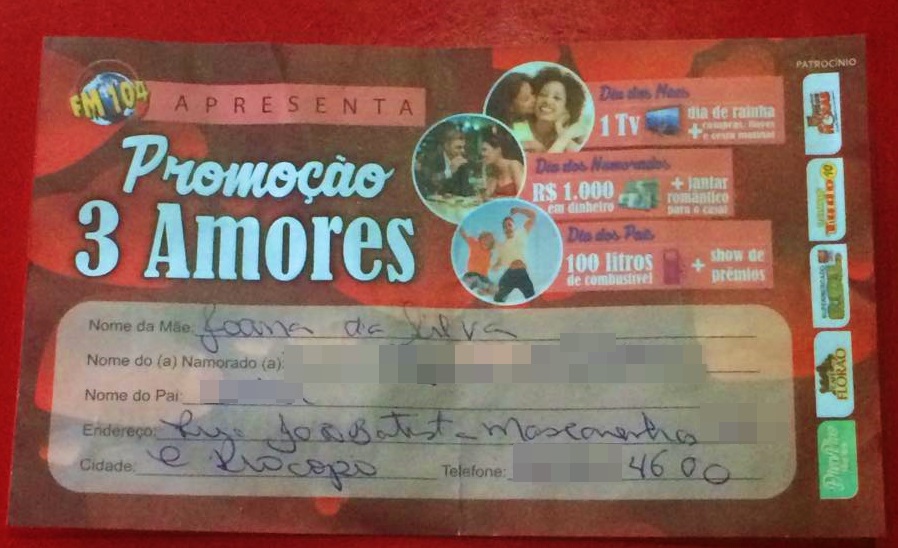 FM 104
APRESENTA
Promoção
3 Amores
PATROCÍNIO
Dia das Mães
1 Tv + dia de rainha
Dia dos Namorados
R$ 1.000 em dinheiro + jantar romântico para o casal
Dia dos Pais
100 litros de combustível + show de prêmios
Nome da Mãe: Joana da Silva
Nome do (a) Namorado (a):
Nome do Pai:
Endereço: Rua João Batista Mascarenhas
Cidade: C Procopo Telefone: 4600
SUPERMERCADO
FLORÃO